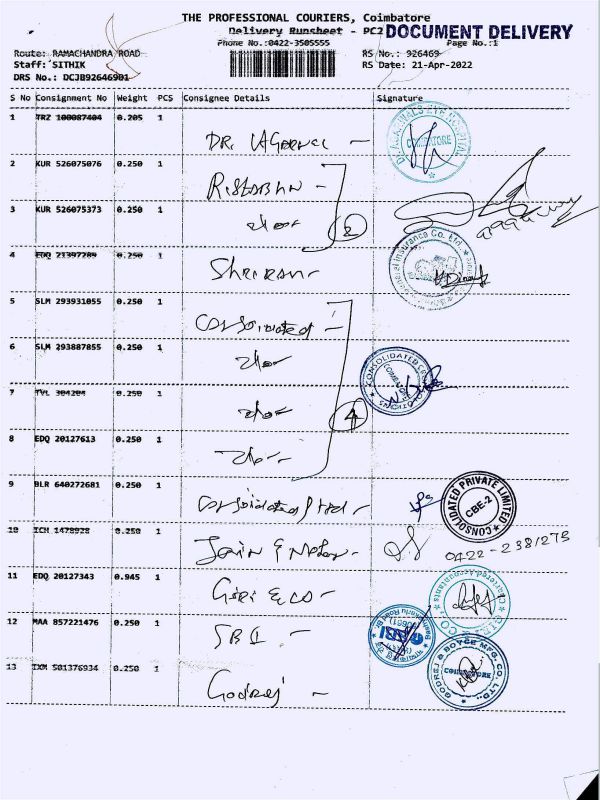 THE PROFESSIONAL COURIERS, Coimbatore
Delivery Runsheet - PC2 DOCUMENT DELIVERY
Phone No.:0422-3505555 Page No.:1
Route: RAMACHANDRA ROAD RS No.: 926469
Staff: SITHIK RS Date: 21-Apr-2022
DRS No.: DCJB92646901
S No Consignment No Weight PCS Consignee Details Signature
1 TRZ 100087404 0.205 1
DR. AGARWAL
2 KUR 526075076 0.250 1
3 KUR 526075373 0.250 1
2
4 EDQ 21397289 0.250 1
5 SLM 293931055 0.250 1
Consolidated
6 SLM 293887855 0.250 1
7 TVL 304204 0.250 1
4
8 EDQ 20127613 0.250 1
9 BLR 640272681 0.250 1
Consolidated P Ltd
CONSOLIDATED PRIVATE LIMITED
CBE-2
10 ICH 1478928 0.250 1
0422-2381275
11 EDQ 20127343 0.945 1
Giri & Co
12 MAA 857221476 0.250 1
SBI
SBI
13 IXM 501376934 0.250 1
Godrej
GODREJ & BOYCE MFG. CO. LTD.
COIMBATORE